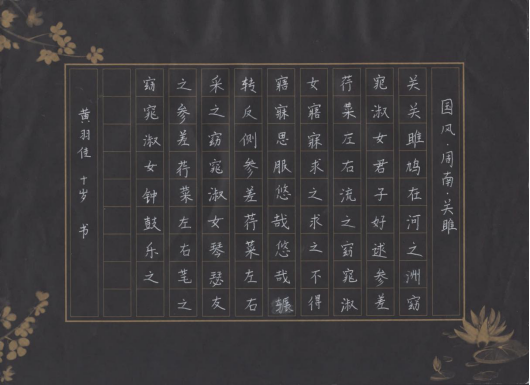 国风·周南·关雎
关关雎鸠在河之洲窈
窕淑女君子好逑参差
荇菜左右流之窈窕淑
女寤寐求之求之不得
寤寐思服悠哉悠哉辗
转反侧参差荇菜左右
采之窈窕淑女琴瑟友
之参差荇菜左右芼之
窈窕淑女钟鼓乐之
黄羽佳 十岁 书